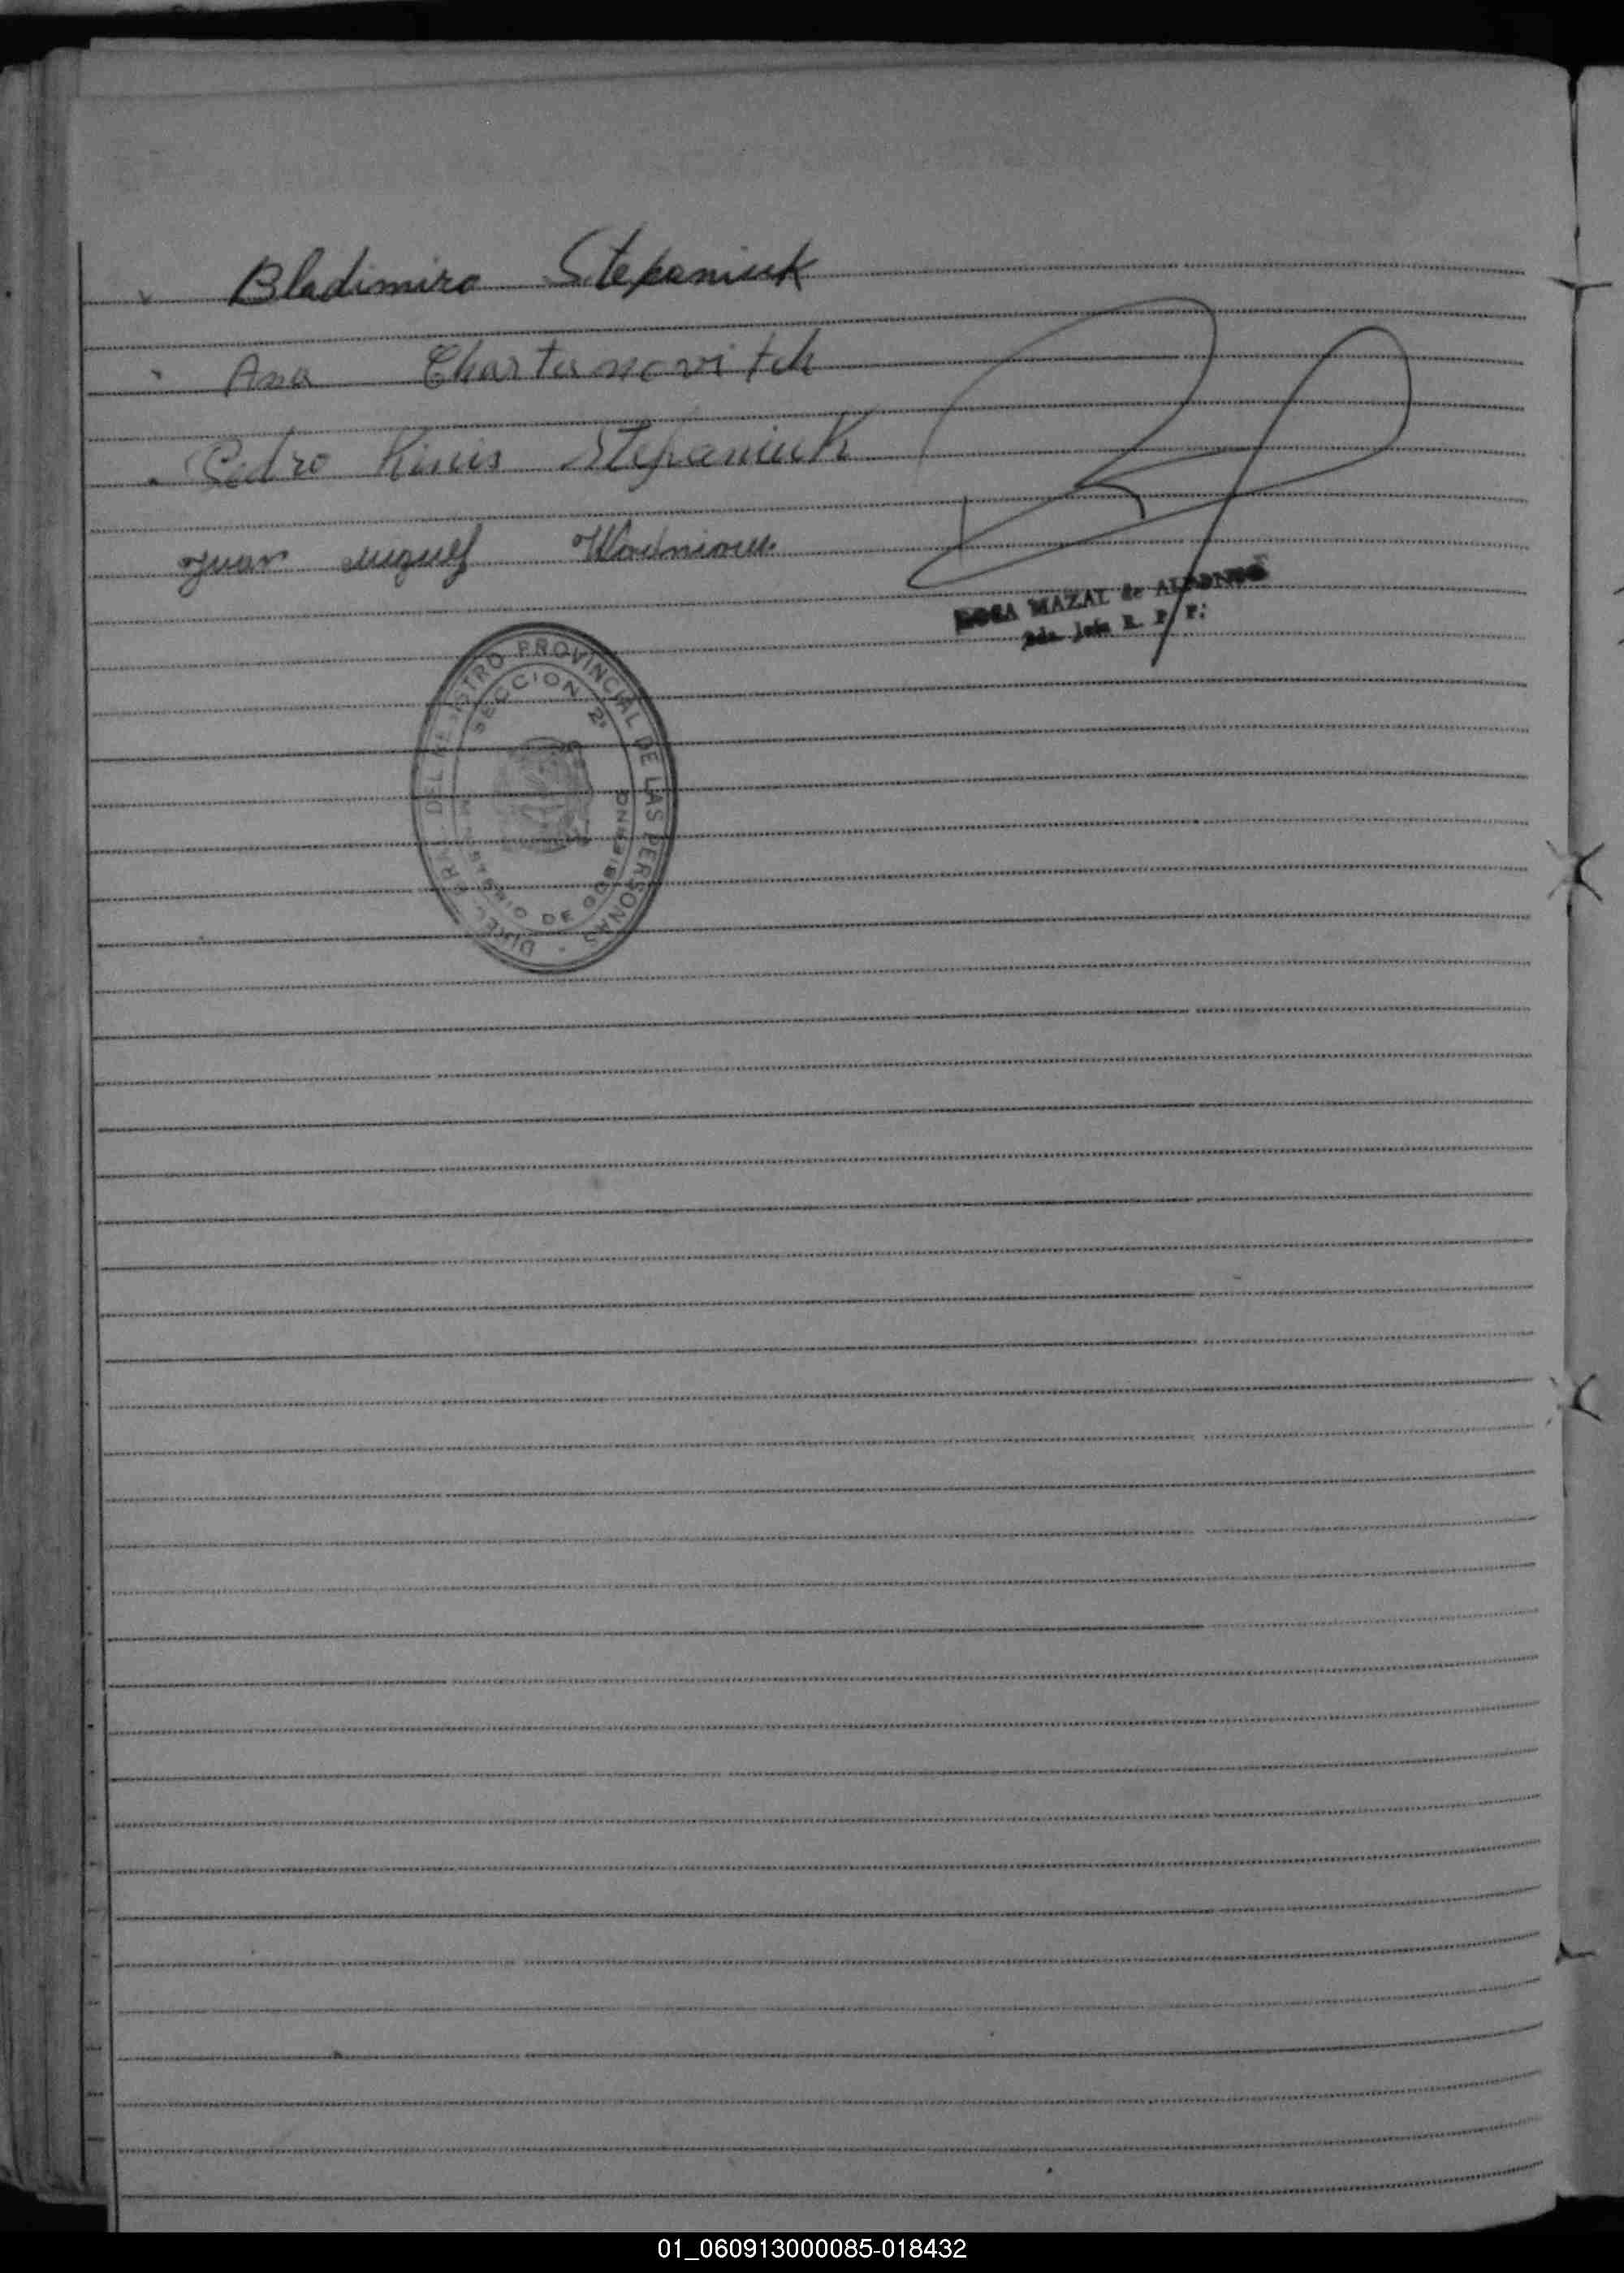 Bladimiro Stepaniuk
Ana Chartanovitch
Pedro Kinis Stepaniuk
Juan Miguel
MAZAL de
R. P. P.
DIREC. GRAL. DEL REGISTRO PROVINCIAL DE LAS PERSONAS
SECCION 2ª
MINISTERIO DE GOBIERNO
01_060913000085-018432